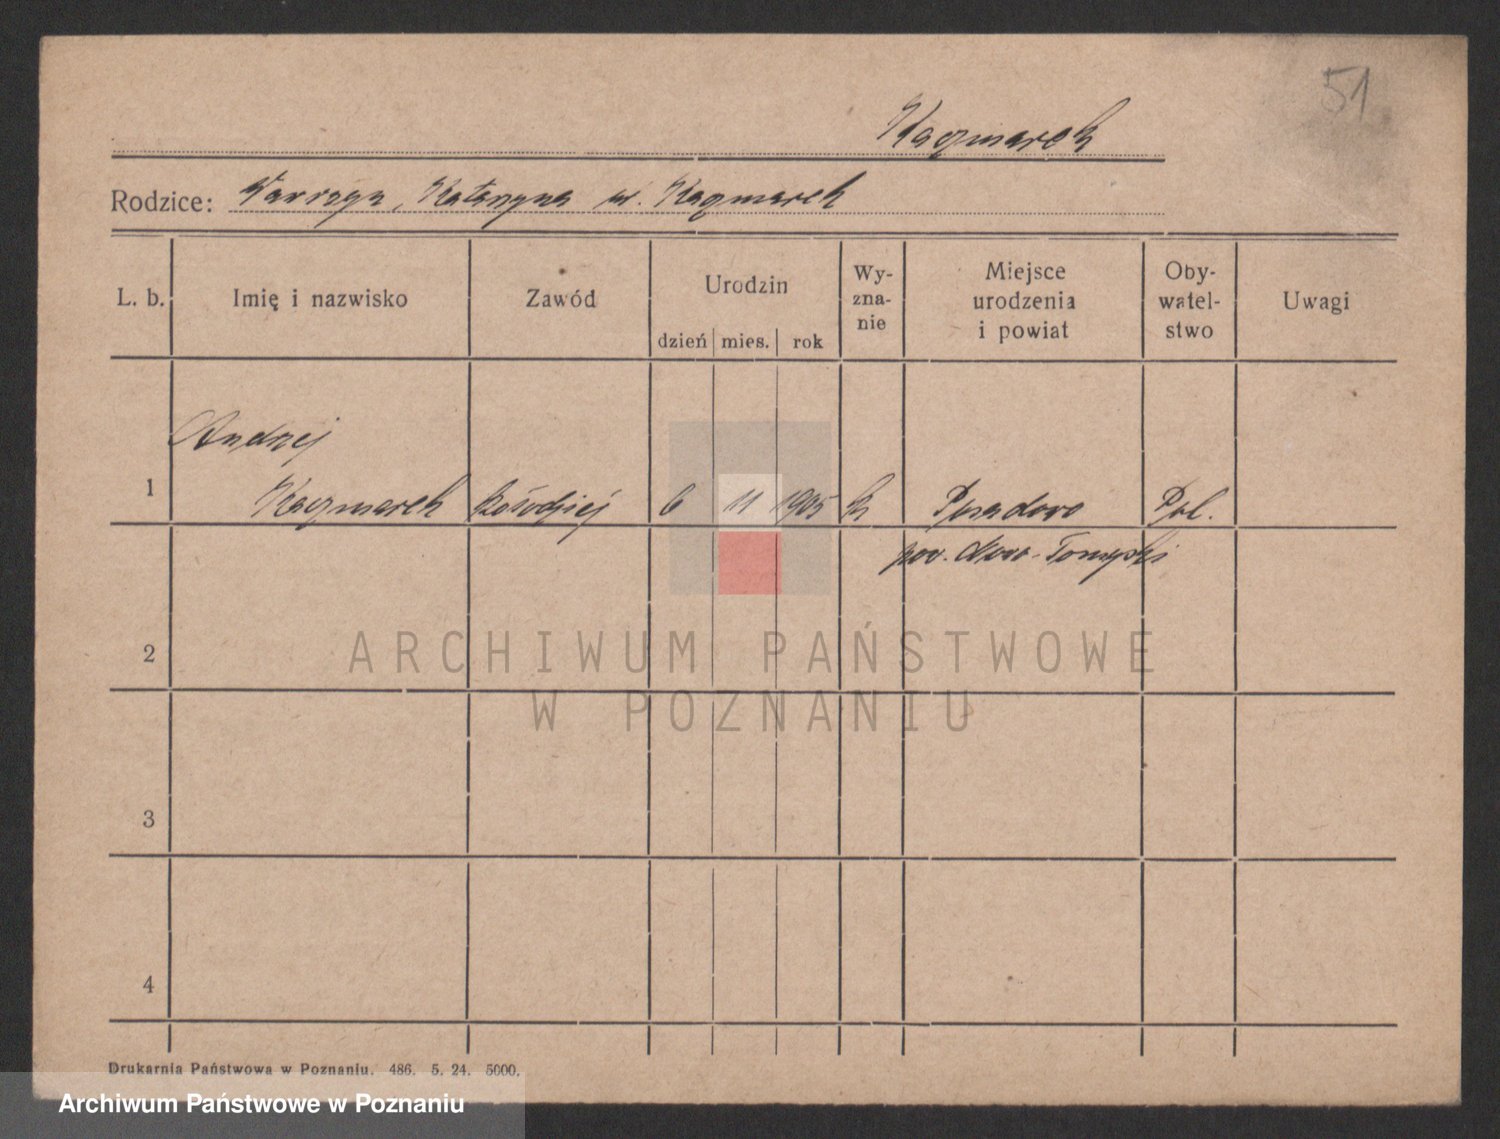 51
Kaczmarek
Rodzice: Wawrzyn, Katarzyna ur. Kaczmarek
L. b. Imię i nazwisko Zawód Urodzin dzień mies. rok Wy-zna-nie Miejsce urodzenia i powiat Oby-watel-stwo Uwagi
Andrzej
1 Kaczmarek kołodziej 6 11 1905 k Posadowo Pol.
pow. Nowo-Tomyski
2
ARCHIWUM PAŃSTWOWE
W POZNANIU
3
4
Drukarnia Państwowa w Poznaniu. 486. 5. 24. 5000.
Archiwum Państwowe w Poznaniu